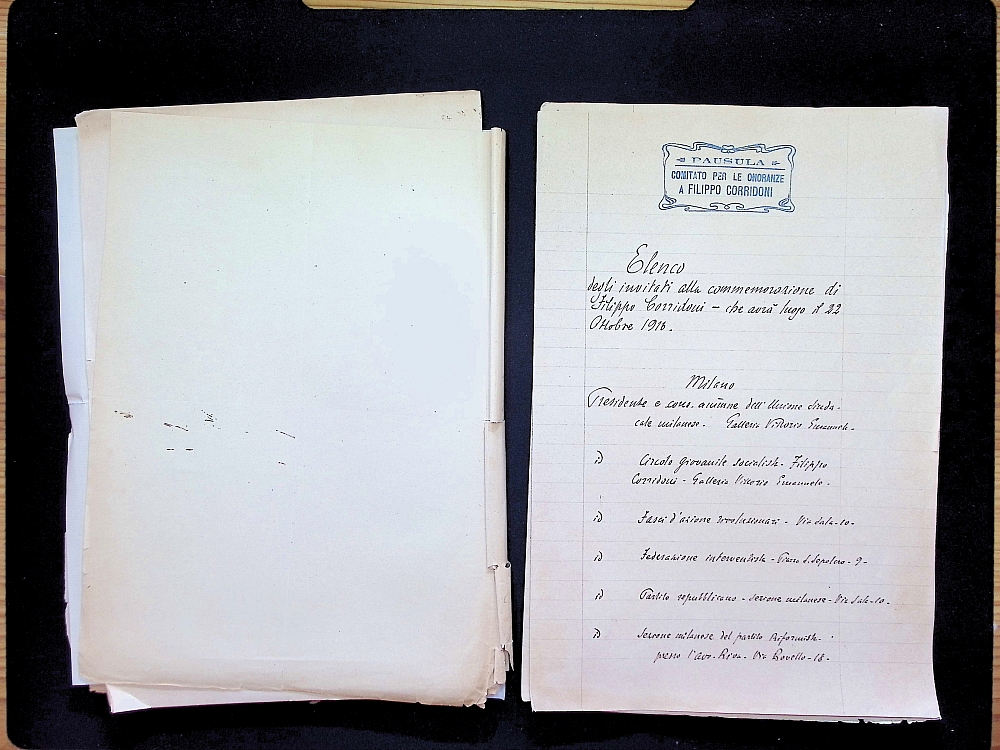 PAUSULA
COMITATO PER LE ONORANZE
A FILIPPO CORRIDONI
Elenco
degli invitati alla commemorazione di
Filippo Corridoni - che avrà luogo il 22
Ottobre 1916.
Milano
Presidente e cons. dell'Unione sinda-
cale milanese. Galleria Vittorio Emanuele.
id Circolo giovanile socialista - Filippo
Corridoni - Galleria Vittorio Emanuele -
id Fasci d'azione rivoluzionari - Via Sala - 10 -
id Federazione interventista - Piazza S. Sepolcro - 9 -
id Partito repubblicano - sezione milanese - Via Sala - 10 -
id Sezione milanese del partito Riformista -
presso l'avv. Riva - Via Rovello - 18 -